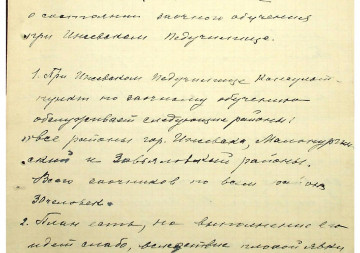 о состоянии заочного обучения
при Ижевском Педучилище.
1. При Ижевском Педучилище Консульт-
пункт по заочному обучению
обслуживает следующие районы:
все районы гор. Ижевска, Малопургин-
ский и Завьяловский районы.
Всего заочников по всем район.
30 человек.
2. План есть, но выполнение его
идет слабо, вследствие плохой явки